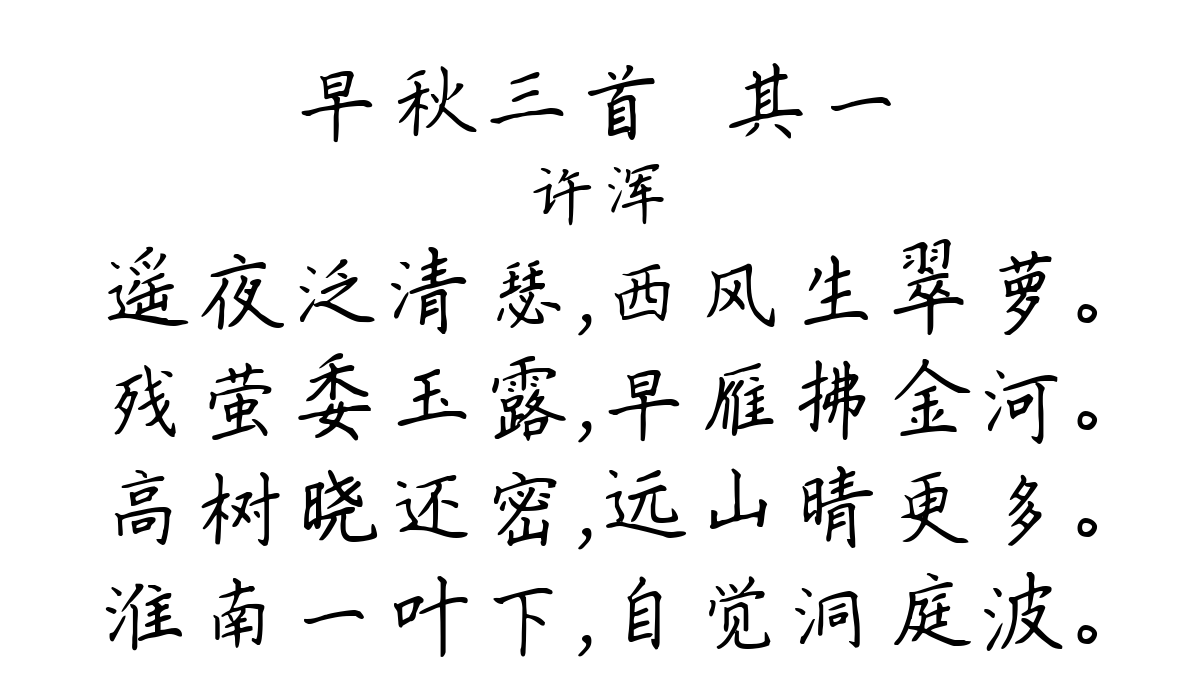 早秋三首 其一
许浑
遥夜泛清瑟,西风生翠萝。
残萤委玉露,早雁拂金河。
高树晓还密,远山晴更多。
淮南一叶下,自觉洞庭波。